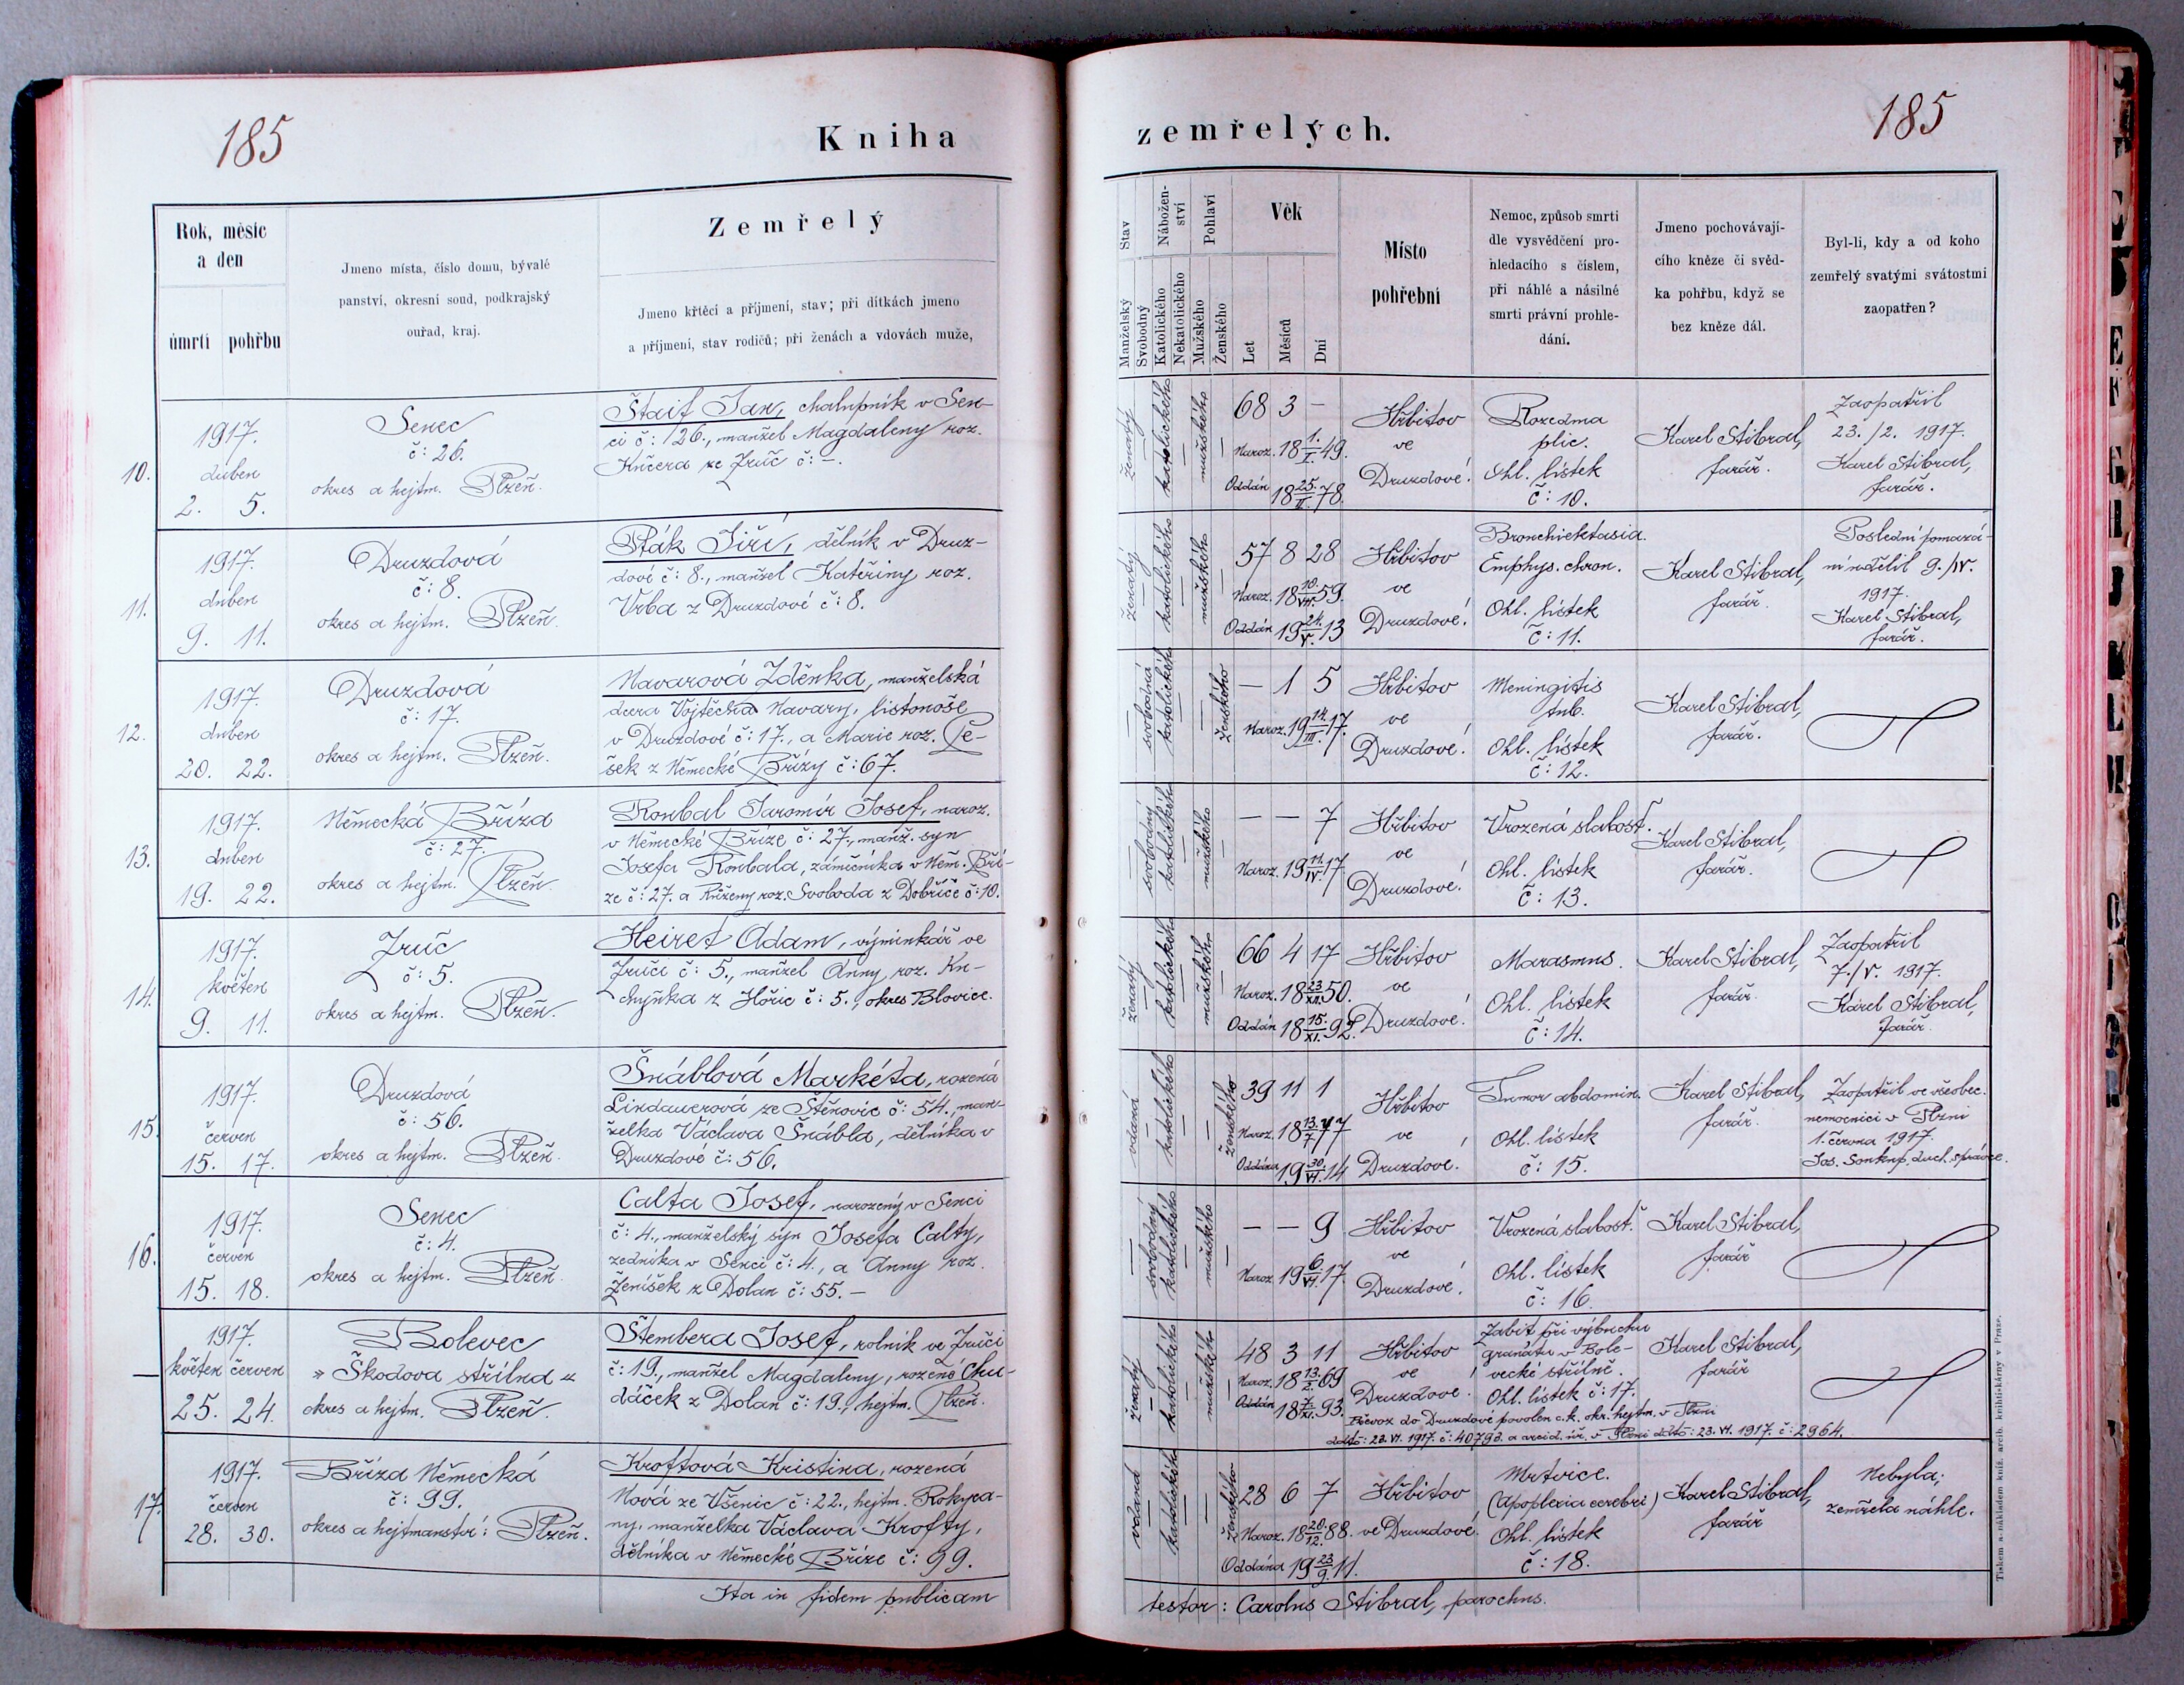 185
Kniha
zemřelých.
185
Rok, měsíc
a den
úmrtí
pohřbu
Jmeno místa, číslo domu, bývalé
panství, okresní soud, podkrajský
ouřad, kraj.
Zemřelý
Jmeno křtěcí a příjmení, stav; při dítkách jmeno
a příjmení, stav rodičů; při ženách a vdovách muže,
Stav
Manželský
Svobodný
Nábožen-
ství
Katolického
Nekatolického
Pohlaví
Mužského
Ženského
Věk
Let
Měsíců
Dní
Místo
pohřební
Nemoc, způsob smrti
dle vysvědčení pro-
hledacího s číslem,
při náhlé a násilné
smrti právní prohle-
dání.
Jmeno pochovávají-
cího kněze či svěd-
ka pohřbu, když se
bez kněze dál.
Byl-li, kdy a od koho
zemřelý svatými svátostmi
zaopatřen?
10.
1917.
duben
2. 5.
Senec
č: 26.
okres a hejtm. Plzeň.
Štaif Jan, chalupník v Sen-
ci č: 26., manžel Magdaleny roz.
Kučera ze Zruč č: –.
ženatý
katolického
mužského
68 3 –
Naroz. 18 1./I. 49.
Oddán 18 25./II. 78.
Hřbitov
ve
Druzdové!
Rozedma
plic.
Ohl. lístek
č: 10.
Karel Stibral,
farář.
Zaopatřil
23./2. 1917.
Karel Stibral,
farář.
11.
1917.
duben
9. 11.
Druzdová
č: 8.
okres a hejtm. Plzeň.
Pták Jiří, dělník v Druz-
dové č: 8., manžel Kateřiny roz.
Vrba z Druzdové č: 8.
ženatý
katolického
mužského
57 8 28
Naroz. 18 10./VII. 59.
Oddán 19 24./V. 13
Hřbitov
ve
Druzdové!
Bronchiektasia.
Emphys. chron.
Ohl. lístek
č: 11.
Karel Stibral,
farář.
Poslední pomazá-
ní udělil 9./IV.
1917.
Karel Stibral,
farář.
12.
1917.
duben
20. 22.
Druzdová
č: 17.
okres a hejtm. Plzeň.
Navarová Zděnka, manželská
dcera Vojtěcha Navary, listonoše
v Druzdové č: 17., a Marie roz. Če-
šek z Německé Břízy č: 67.
svobodná
katolického
ženského
– 1 5
Naroz. 19 14./III. 17.
Hřbitov
ve
Druzdové!
Meningitis
tub.
Ohl. lístek
č: 12.
Karel Stibral,
farář.
13.
1917.
duben
19. 22.
Německá Bříza
č: 27.
okres a hejtm. Plzeň.
Roubal Jaromír Josef, naroz.
v Německé Bříze č: 27., manž. syn
Josefa Roubala, zámečníka v Něm. Bří-
ze č: 27. a Růženy roz. Svoboda z Dobříče č: 10.
svobodný
katolického
mužského
– – 7
Naroz. 19 11./IV. 17
Hřbitov
ve
Druzdové!
Vrozená slabosť.
Ohl. lístek
č: 13.
Karel Stibral,
farář.
14.
1917.
květen
9. 11.
Zruč
č: 5.
okres a hejtm. Plzeň.
Heiret Adam, výminkář ve
Zruči č: 5., manžel Anny roz. Ku-
chyňka z Hořic č: 5., okres Blovice.
ženatý
katolického
mužského
66 4 17
Naroz. 18 23/XII. 50.
Oddán 18 15./XI. 92.
Hřbitov
ve
Druzdové!
Marasmus.
Ohl. lístek
č: 14.
Karel Stibral,
farář.
Zaopatřil
7./V. 1917.
Karel Stibral,
farář.
15.
1917.
červen
15. 17.
Druzdová
č: 56.
okres a hejtm. Plzeň.
Šnáblová Markéta, rozená
Lindauerová ze Štěnovic č: 54., man-
želka Václava Šnábla, dělníka v
Druzdové č: 56.
vdaná
katolického
ženského
39 11 1
Naroz. 18 13./7. 77
Oddána 19 30./VI. 14
Hřbitov
ve
Druzdové!
Tumor abdomin.
Ohl. lístek
č: 15.
Karel Stibral,
farář.
Zaopatřil ve všeobec.
nemocnici v Plzni
1. června 1917.
Jos. Soukup, duch. správce.
16.
1917.
červen
15. 18.
Senec
č: 4.
okres a hejtm. Plzeň.
Calta Josef, narozený v Senci
č: 4., manželský syn Josefa Calty,
zedníka v Senci č: 4., a Anny roz.
Ženíšek z Dolan č: 55. –
svobodný
katolického
mužského
– – 9
Naroz. 19 6./VI. 17.
Hřbitov
ve
Druzdové!
Vrozená slabosť.
Ohl. lístek
č: 16.
Karel Stibral,
farář
–
1917.
květen červen
25. 24.
Bolevec
„Škodova střílna“
okres a hejtm. Plzeň.
Štembera Josef, rolník ve Zruči
č: 19., manžel Magdaleny, rozené Chu-
dáček z Dolan č: 19., hejtm. Plzeň.
ženatý
katolického
mužského
48 3 11
Naroz. 18 13./2. 69
Oddán 18 7./XI. 93.
Hřbitov
ve
Druzdové!
Zabit při výbuchu
granátu v Bole-
vecké střílně.
Ohl. lístek č: 17.
Karel Stibral,
farář
Převoz do Druzdové povolen c. k. okr. hejtm. v Plzni
ddto: 23. VI. 1917. č: 40793. a arcid. úř. v Plzni ddto: 23. VI. 1917. č: 2964.
17.
1917.
červen
28. 30.
Bříza Německá
č: 99.
okres a hejtmanství: Plzeň.
Kroftová Kristina, rozená
Nová ze Všenic č: 22., hejtm. Rokyca-
ny, manželka Václava Krofty,
dělníka v Německé Bříze č: 99.
vdaná
katolického
ženského
28 6 7
Naroz. 18 20./12. 88.
Oddána 19 23/9. 11.
Hřbitov
ve Druzdové.
Mrtvice.
(Apoplexia cerebri)
Ohl. lístek
č: 18.
Karel Stibral,
farář
Nebyla;
zemřela náhle.
Ita in fidem publicam
testor: Carolus Stibral, parochus.
Tiskem a nákladem kníž. arcib. knihtiskárny v Praze.